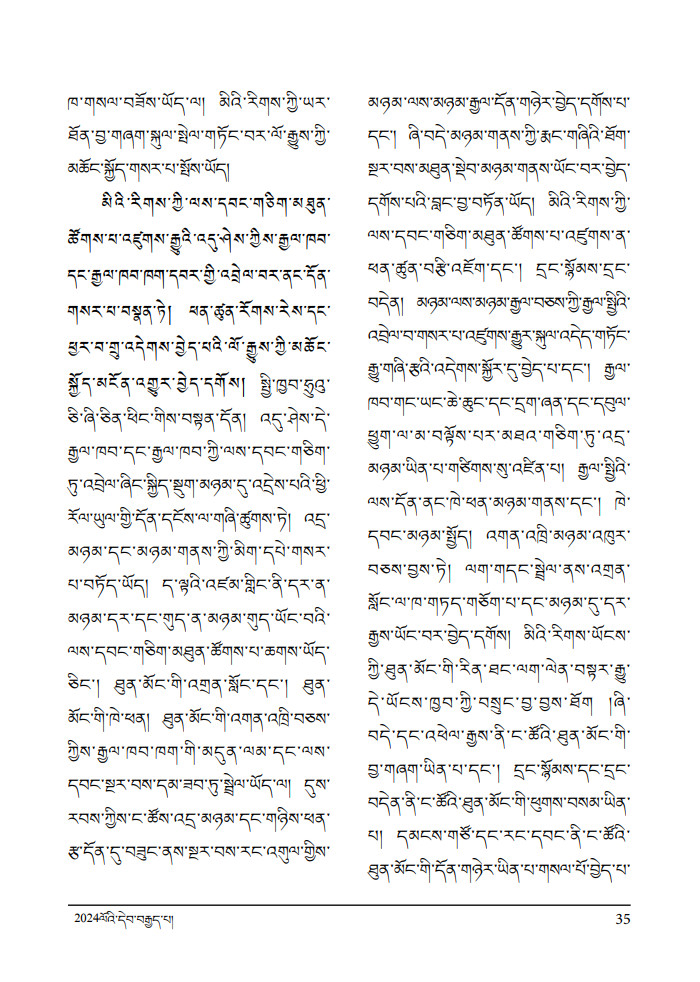 ཁ་གསལ་བཟོས་ཡོད་ལ། མིའི་རིགས་ཀྱི་ཡར་
ཐོན་བྱ་གཞག་སྐུལ་སྤེལ་གཏོང་བར་ལོ་རྒྱུས་ཀྱི་
མཚོང་སྐྱོད་གསར་པ་སྤོས་ཡོད།
མིའི་རིགས་ཀྱི་ལས་དབང་གཅིག་མཐུན་
ཚོགས་པ་འཛུགས་རྒྱུའི་འདུ་ཤེས་ཀྱིས་རྒྱལ་ཁབ་
དང་རྒྱལ་ཁབ་ཁག་དབར་གྱི་འབྲེལ་བར་ནང་དོན་
གསར་པ་བསྣན་ཏེ། ཕན་ཚུན་རོགས་རེས་དང་
ཕྱར་བ་གྲུ་འདེགས་བྱེད་པའི་ལོ་རྒྱུས་ཀྱི་མཚོང་
སྐྱོད་མངོན་འགྱུར་བྱེད་དགོས། སྤྱི་ཁྱབ་ཧྲུའུ་
ཅི་ཞི་ཅིན་ཕིང་གིས་བསྟན་དོན། འདུ་ཤེས་དེ་
རྒྱལ་ཁབ་དང་རྒྱལ་ཁབ་ཀྱི་ལས་དབང་གཅིག་
ཏུ་འབྲེལ་ཞིང་སྐྱིད་སྡུག་མཉམ་དུ་འདྲེས་པའི་ཕྱི་
རོལ་ཡུལ་གྱི་དོན་དངོས་ལ་གཞི་ཚུགས་ཏེ། འདྲ་
མཉམ་དང་མཉམ་གནས་ཀྱི་མིག་དཔེ་གསར་
པ་བཏོད་ཡོད། ད་ལྟའི་འཛམ་གླིང་ནི་དར་ན་
མཉམ་དར་དང་གུད་ན་མཉམ་གུད་ཡོང་བའི་
ལས་དབང་གཅིག་མཐུན་ཚོགས་པ་ཆགས་ཡོད་
ཅིང་། ཐུན་མོང་གི་འགྲན་སློང་དང་། ཐུན་
མོང་གི་ཁེ་ཕན། ཐུན་མོང་གི་འགན་འཁྲི་བཅས་
ཀྱིས་རྒྱལ་ཁབ་ཁག་གི་མདུན་ལམ་དང་ལས་
དབང་སྔར་བས་དམ་ཟབ་ཏུ་སྦྲེལ་ཡོད་ལ། དུས་
རབས་ཀྱིས་ང་ཚོས་འདྲ་མཉམ་དང་གཉིས་ཕན་
རྩ་དོན་དུ་བཟུང་ནས་སྔར་བས་རང་འགུལ་གྱིས་
མཉམ་ལས་མཉམ་རྒྱལ་དོན་གཉེར་བྱེད་དགོས་པ་
དང་། ཞི་བདེ་མཉམ་གནས་ཀྱི་རྨང་གཞིའི་ཐོག་
སྔར་བས་མཐུན་སྡེབ་མཉམ་གནས་ཡོང་བར་བྱེད་
དགོས་པའི་བླང་བྱ་བཏོན་ཡོད། མིའི་རིགས་ཀྱི་
ལས་དབང་གཅིག་མཐུན་ཚོགས་པ་འཛུགས་ན་
ཕན་ཚུན་བརྩི་འཇོག་དང་། དྲང་སྙོམས་དྲང་
བདེན། མཉམ་ལས་མཉམ་རྒྱལ་བཅས་ཀྱི་རྒྱལ་སྤྱིའི་
འབྲེལ་བ་གསར་པ་འཛུགས་རྒྱུར་སྐུལ་འདེད་གཏོང་
རྒྱུ་གཞི་རྩའི་འདེགས་སྐྱོར་དུ་བྱེད་པ་དང་། རྒྱལ་
ཁབ་གང་ཡང་ཆེ་ཆུང་དང་དྲག་ཞན་དང་དབུལ་
ཕྱུག་ལ་མ་བལྟོས་པར་མཐའ་གཅིག་ཏུ་འདྲ་
མཉམ་ཡིན་པ་གཙིགས་སུ་འཛིན་པ། རྒྱལ་སྤྱིའི་
ལས་དོན་ནང་ཁེ་ཕན་མཉམ་གནས་དང་། ཁེ་
དབང་མཉམ་སྤྱོད། འགན་འཁྲི་མཉམ་འཁུར་
བཅས་བྱས་ཏེ། ལག་གདང་སྦྲེལ་ནས་འགྲན་
སློང་ལ་ཁ་གཏད་གཅོག་པ་དང་མཉམ་དུ་དར་
རྒྱས་ཡོང་བར་བྱེད་དགོས། མིའི་རིགས་ཡོངས་
ཀྱི་ཐུན་མོང་གི་རིན་ཐང་ལག་ལེན་བསྟར་རྒྱུ་
དེ་ཡོངས་ཁྱབ་ཀྱི་བསྲུང་བྱ་བྱས་ཐོག །ཞི་
བདེ་དང་འཕེལ་རྒྱས་ནི་ང་ཚོའི་ཐུན་མོང་གི་
བྱ་གཞག་ཡིན་པ་དང་། དྲང་སྙོམས་དང་དྲང་
བདེན་ནི་ང་ཚོའི་ཐུན་མོང་གི་ཕུགས་བསམ་ཡིན་
པ། དམངས་གཙོ་དང་རང་དབང་ནི་ང་ཚོའི་
ཐུན་མོང་གི་དོན་གཉེར་ཡིན་པ་གསལ་པོ་བྱེད་པ་
2024ལོའི་དེབ་བརྒྱད་པ།
35